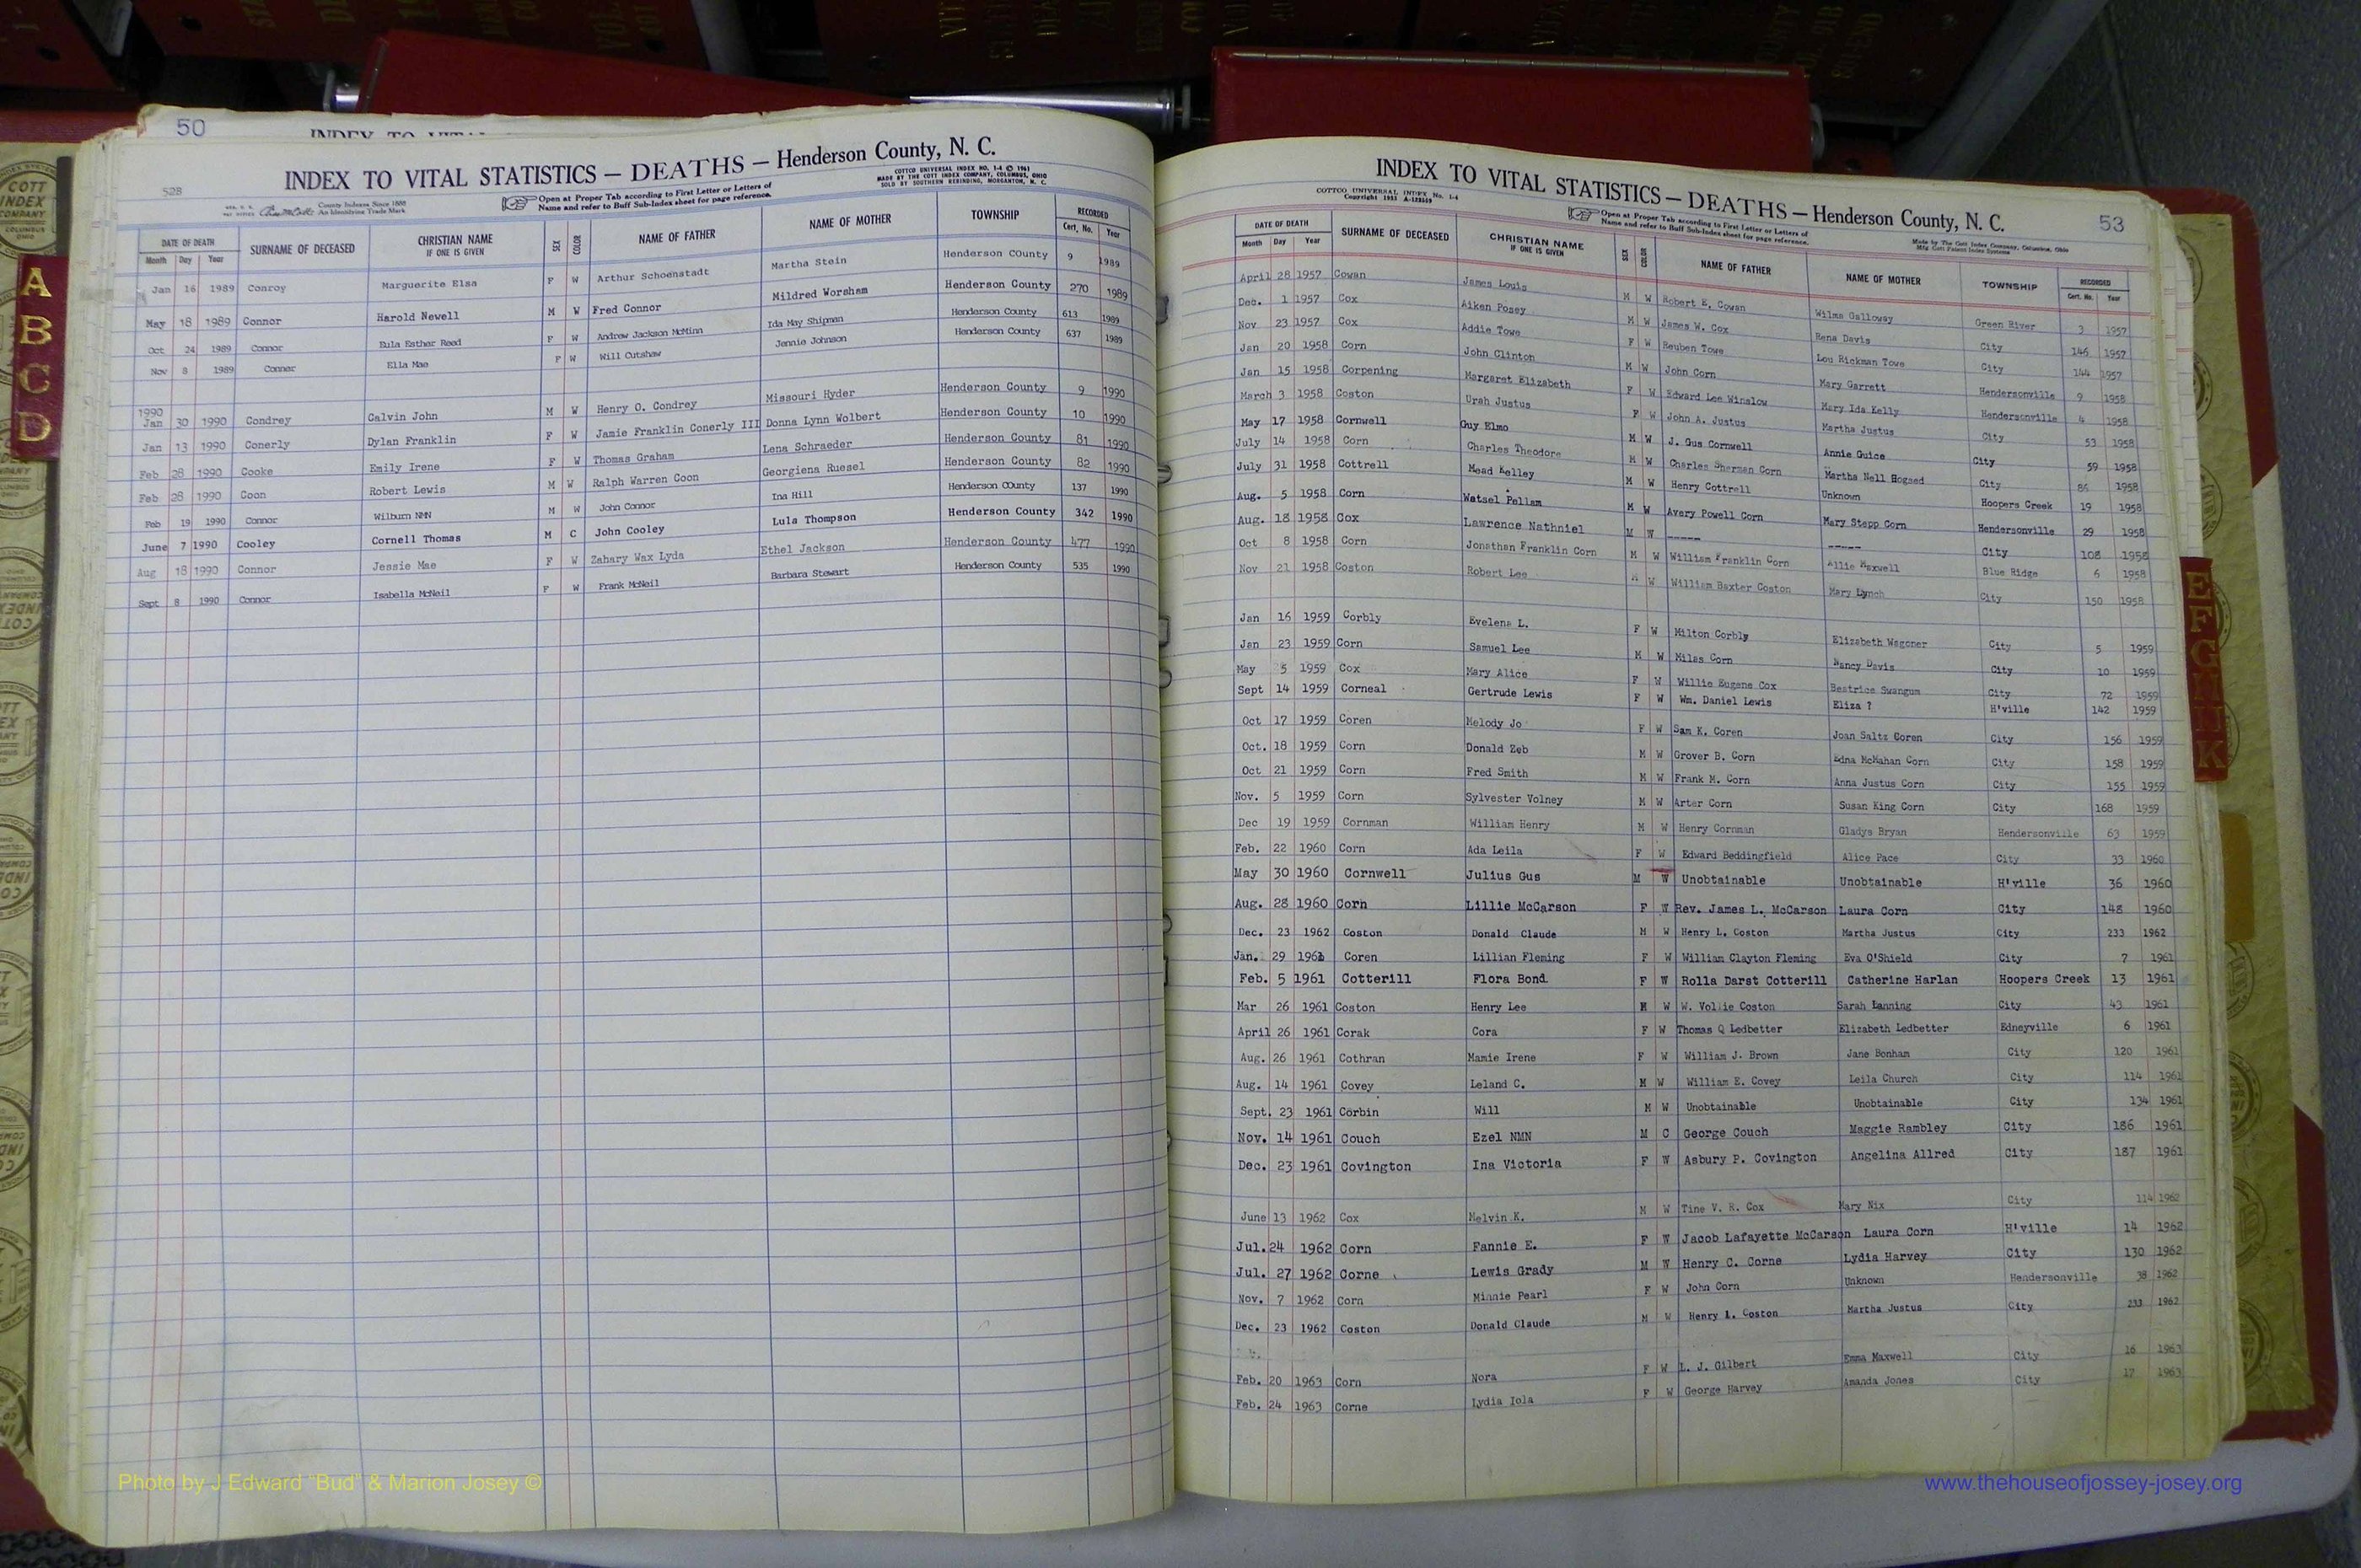 50
INDEX TO VITAL STATISTICS — DEATHS — Henderson County, N. C.
528
County Indexes Since 1888
An Identifying Trade Mark
Open at Proper Tab according to First Letter or Letters of
Name and refer to Buff Sub-Index sheet for page reference.
COTTCO UNIVERSAL INDEX NO. 1-4 © 1961
MADE BY THE COTT INDEX COMPANY, COLUMBUS, OHIO
SOLD BY SOUTHERN REBINDING, MORGANTON, N. C.
DATE OF DEATH SURNAME OF DECEASED CHRISTIAN NAME IF ONE IS GIVEN SEX COLOR NAME OF FATHER NAME OF MOTHER TOWNSHIP RECORDED
Month Day Year Cert. No. Year
Jan 16 1989 Conroy Marguerite Elsa F W Arthur Schoenstadt Martha Stein Henderson County 9 1989
May 18 1989 Connor Harold Newell M W Fred Connor Mildred Worsham Henderson County 270 1989
Oct 24 1989 Connor Eula Esther Reed F W Andrew Jackson McMinn Ida May Shipman Henderson County 613 1989
Nov 8 1989 Connor Ella Mae F W Will Cutshaw Jennie Johnson Henderson County 637 1989
1990
Jan 30 1990 Condrey Calvin John M W Henry O. Condrey Missouri Hyder Henderson County 9 1990
Jan 13 1990 Conerly Dylan Franklin F W Jamie Franklin Conerly III Donna Lynn Wolbert Henderson County 10 1990
Feb 28 1990 Cooke Emily Irene F W Thomas Graham Lena Schraeder Henderson County 81 1990
Feb 28 1990 Coon Robert Lewis M W Ralph Warren Coon Georgiena Ruesel Henderson County 82 1990
Feb 19 1990 Connor Wilburn NMN M W John Connor Ina Hill Henderson COunty 137 1990
June 7 1990 Cooley Cornell Thomas M C John Cooley Lula Thompson Henderson County 342 1990
Aug 18 1990 Connor Jessie Mae F W Zahary Wax Lyda Ethel Jackson Henderson County 477 1990
Sept 8 1990 Connor Isabella McNeil F W Frank McNeil Barbara Stewart Henderson County 535 1990
INDEX TO VITAL STATISTICS — DEATHS — Henderson County, N. C.
53
COTTCO UNIVERSAL INDEX No. 1-4
Open at Proper Tab according to First Letter or Letters of
Name and refer to Buff Sub-Index sheet for page reference.
Made by The Cott Index Company, Columbus, Ohio
DATE OF DEATH SURNAME OF DECEASED CHRISTIAN NAME IF ONE IS GIVEN SEX COLOR NAME OF FATHER NAME OF MOTHER TOWNSHIP RECORDED
Month Day Year Cert. No. Year
April 28 1957 Cowan James Louis M W Robert E. Cowan Wilma Galloway Green River 3 1957
Dec. 1 1957 Cox Aiken Posey M W James W. Cox Rena Davis City 146 1957
Nov 23 1957 Cox Addie Towe F W Reuben Towe Lou Rickman Towe City 144 1957
Jan 20 1958 Corn John Clinton M W John Corn Mary Garrett Hendersonville 9 1958
Jan 15 1958 Corpening Margaret Elizabeth F W Edward Lee Winslow Mary Ida Kelly Hendersonville 4 1958
March 3 1958 Coston Urah Justus F W John A. Justus Martha Justus City 53 1958
May 17 1958 Cornwell Guy Elmo M W J. Gus Cornwell Annie Guice City 59 1958
July 14 1958 Corn Charles Theodore M W Charles Sherman Corn Martha Nell Hogsed City 86 1958
July 31 1958 Cottrell Mead Kelley M W Henry Cottrell Unknown Hoopers Creek 19 1958
Aug. 5 1958 Corn Watsel Pellam M W Avery Powell Corn Mary Stepp Corn Hendersonville 29 1958
Aug. 18 1958 Cox Lawrence Nathniel M W ----- ----- City 108 1958
Oct 8 1958 Corn Jonathan Franklin Corn M W William Franklin Corn Allie Maxwell Blue Ridge 6 1958
Nov 21 1958 Coston Robert Lee M W William Baxter Coston Mary Lynch City 150 1958
Jan 16 1959 Corbly Evelena L. F W Milton Corbly Elizabeth Wagoner City 5 1959
Jan 23 1959 Corn Samuel Lee M W Miles Corn Nancy Davis City 10 1959
May 5 1959 Cox Mary Alice F W Willie Eugene Cox Beatrice Swangum City 72 1959
Sept 14 1959 Corneal Gertrude Lewis F W Wm. Daniel Lewis Eliza ? H'ville 142 1959
Oct 17 1959 Coren Melody Jo F W Sam K. Coren Joan Saltz Coren City 156 1959
Oct. 18 1959 Corn Donald Zeb M W Grover B. Corn Edna McMahan Corn City 158 1959
Oct 21 1959 Corn Fred Smith M W Frank M. Corn Anna Justus Corn City 155 1959
Nov. 5 1959 Corn Sylvester Volney M W Arter Corn Susan King Corn City 168 1959
Dec 19 1959 Cornman William Henry M W Henry Cornman Gladys Bryan Hendersonville 63 1959
Feb. 22 1960 Corn Ada Leila F W Edward Beddingfield Alice Pace City 33 1960
May 30 1960 Cornwell Julius Gus M W Unobtainable Unobtainable H'ville 36 1960
Aug. 28 1960 Corn Lillie McCarson F W Rev. James L. McCarson Laura Corn City 148 1960
Dec. 23 1962 Coston Donald Claude M W Henry L. Coston Martha Justus City 233 1962
Jan. 29 1961 Coren Lillian Fleming F W William Clayton Fleming Eva O'Shield City 7 1961
Feb. 5 1961 Cotterill Flora Bond F W Rolla Darst Cotterill Catherine Harlan Hoopers Creek 13 1961
Mar 26 1961 Coston Henry Lee M W W. Vollie Coston Sarah Lanning City 43 1961
April 26 1961 Corak Cora F W Thomas Q Ledbetter Elizabeth Ledbetter Edneyville 6 1961
Aug. 26 1961 Cothran Mamie Irene F W William J. Brown Jane Bonham City 120 1961
Aug. 14 1961 Covey Leland C. M W William E. Covey Leila Church City 114 1961
Sept. 23 1961 Corbin Will M W Unobtainable Unobtainable City 134 1961
Nov. 14 1961 Couch Ezel NMN M C George Couch Maggie Rambley City 186 1961
Dec. 23 1961 Covington Ina Victoria F W Asbury P. Covington Angelina Allred City 187 1961
June 13 1962 Cox Melvin K. M W Tine V. R. Cox Mary Nix City 114 1962
Jul. 24 1962 Corn Fannie E. F W Jacob Lafayette McCarson Laura Corn H'ville 14 1962
Jul. 27 1962 Corne Lewis Grady M W Henry C. Corne Lydia Harvey City 130 1962
Nov. 7 1962 Corn Minnie Pearl F W John Corn Unknown Hendersonville 38 1962
Dec. 23 1962 Coston Donald Claude M W Henry L. Coston Martha Justus City 233 1962
Feb. 20 1963 Corn Nora F W L. J. Gilbert Emma Maxwell City 16 1963
Feb. 24 1963 Corne Lydia Iola F W George Harvey Amanda Jones City 17 1963
A
B
C
D
E
F
G
K
COTT
INDEX
COMPANY
COLUMBUS
OHIO
Photo by J Edward "Bud" & Marion Josey ©
www.thehouseofjossey-josey.org